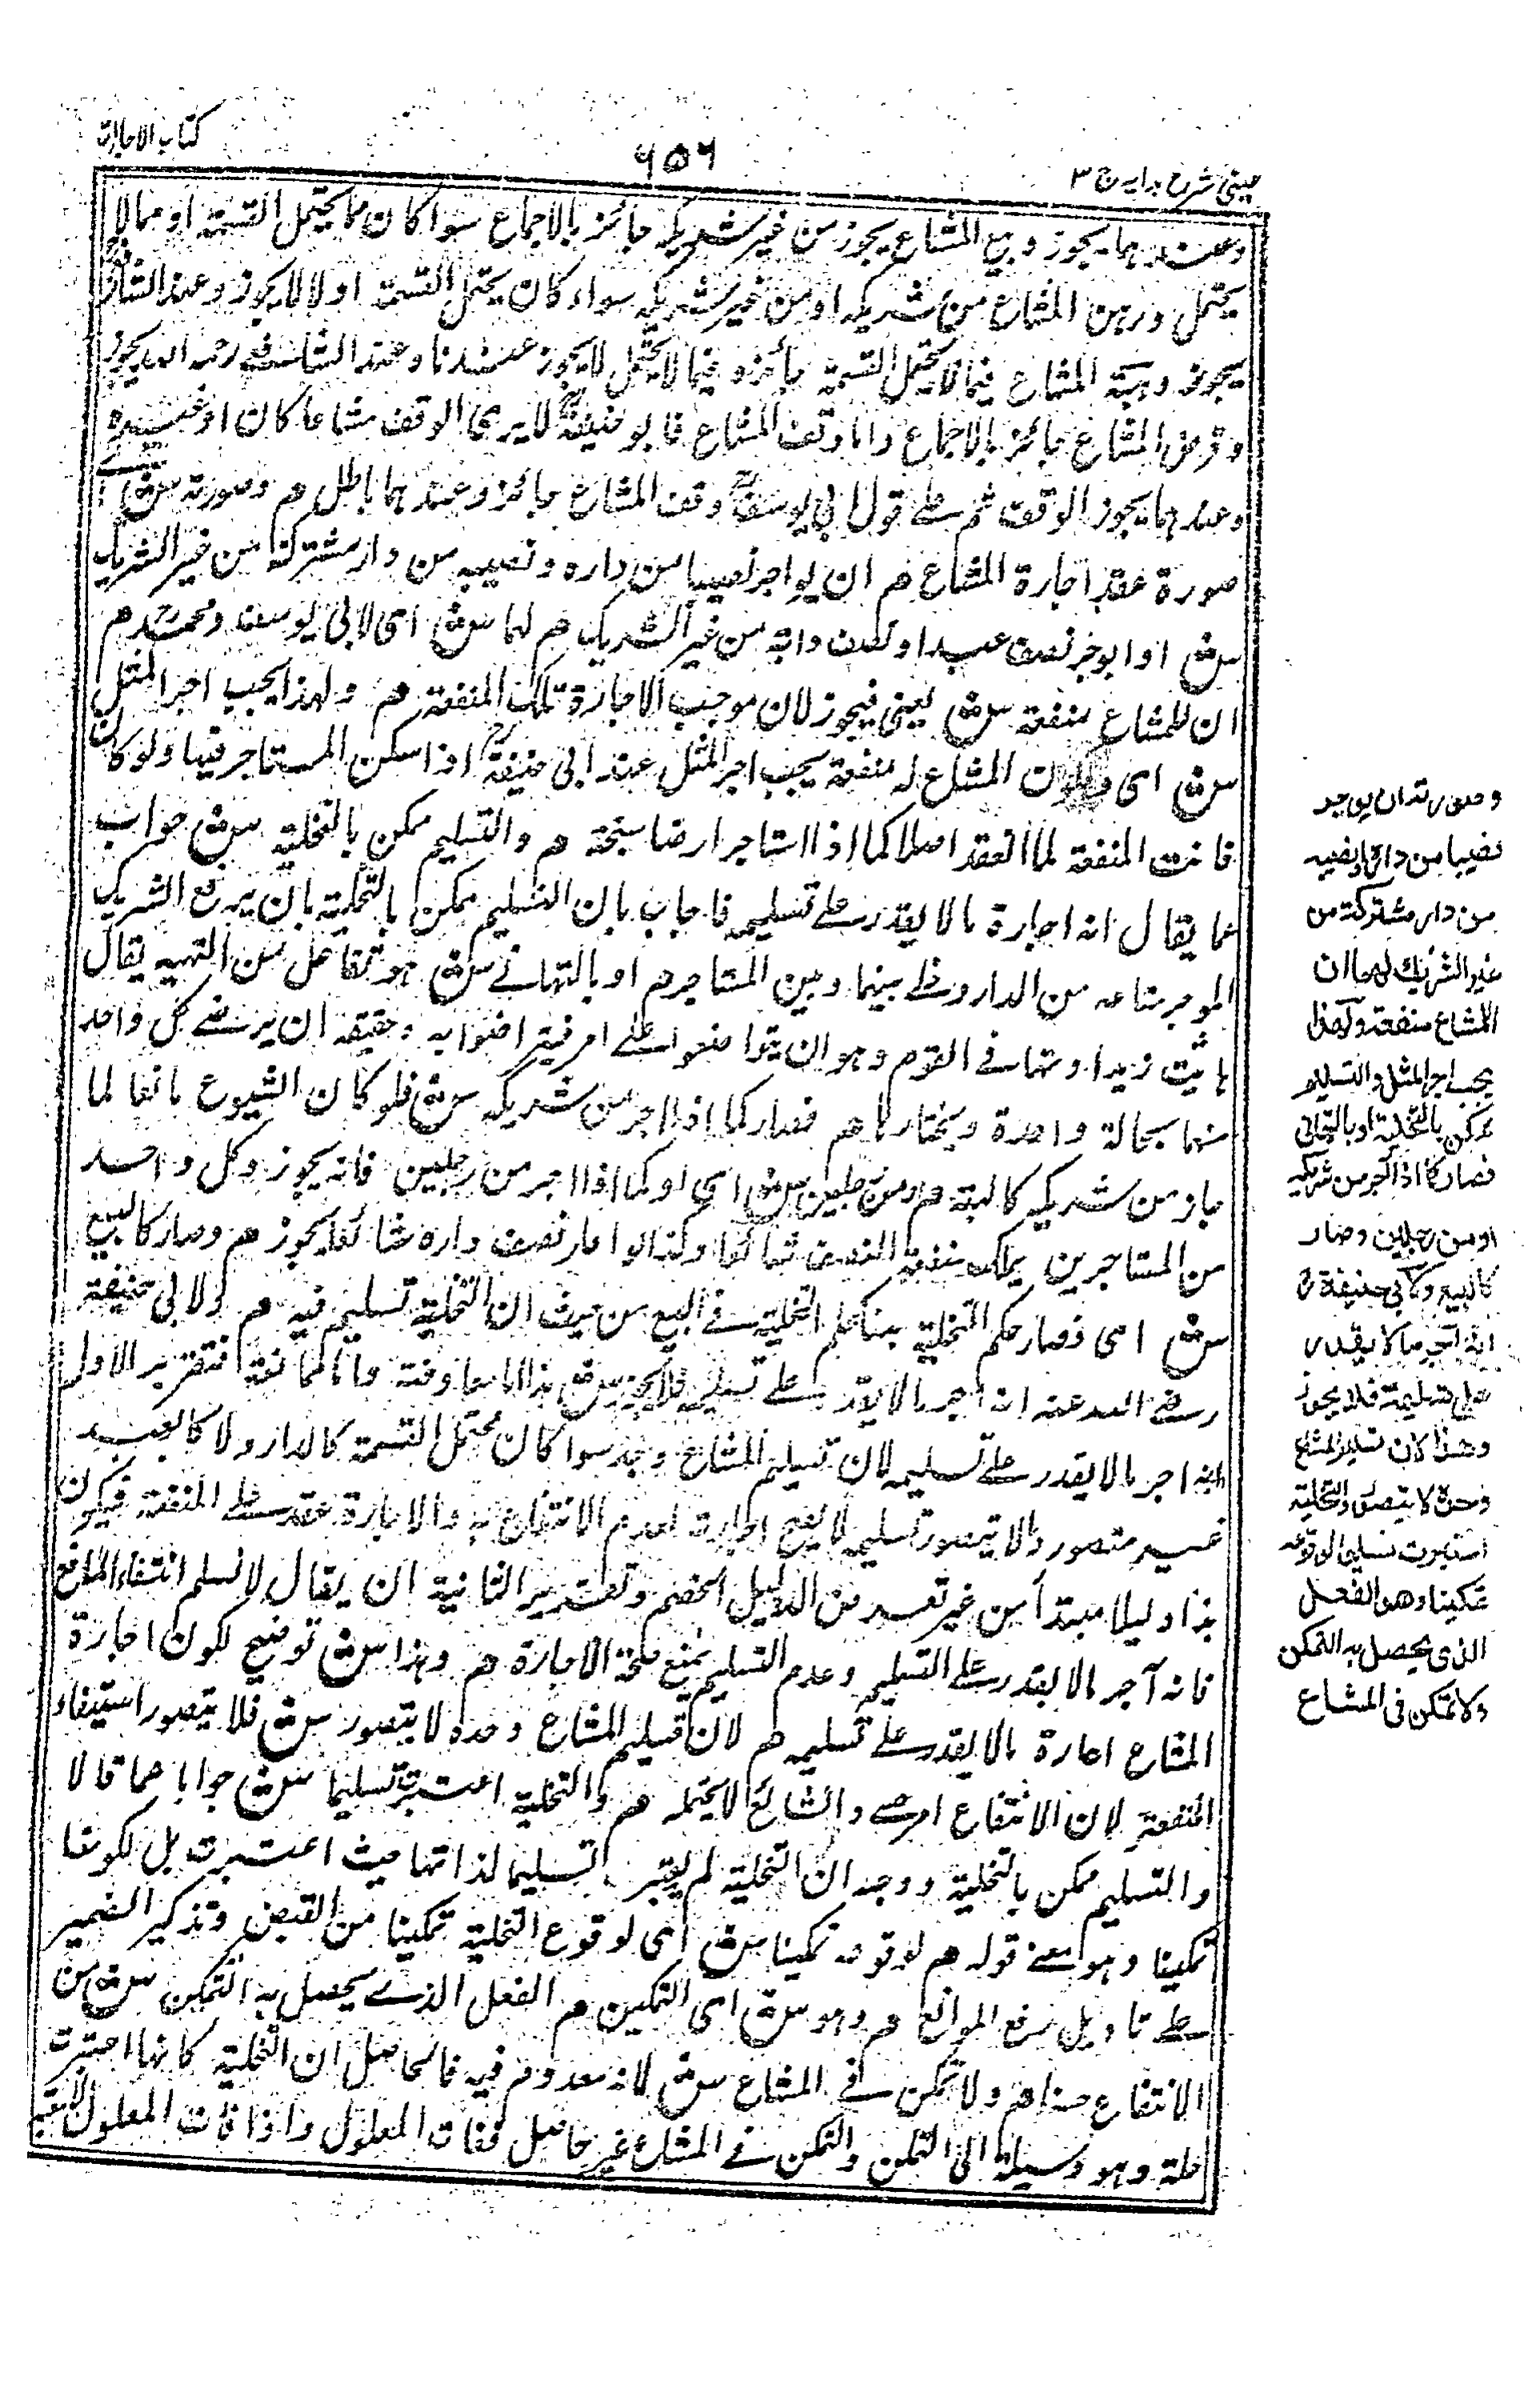 كتاب الاجارات
٦٥٦
عينى شرح هدايه ج ٣
وعندهما يجوز وبيع المشاع يجوز من غير شريكه جائز بالاجماع سواء كان مما يحتمل القسمة او مما لا
يحتمل ورهن المشاع من شريكه او من غير شريكه سواء كان يحتمل القسمة او لا لا يجوز وعند الشافعي
يجوز وهبة المشاع فيما لا يحتمل القسمة جائز وفيما يحتمل لا يجوز عندنا وعند الشافعي رحمه الله يجوز
وقرض المشاع جائز بالاجماع واما وقف المشاع فابو حنيفة لا يرى الوقف مشاعا كان او غيره
وعندهما يجوز الوقف ثم على قول ابي يوسف وقف المشاع جائز وعندهما باطل هم وصورته سش اى
صورة عقد اجارة المشاع هم ان يواجر نصيبا من داره ونصيبه من دار مشتركة من غير الشريك
سش او ابوجر نصف عبد او نصف دابة من غير الشريك هم لهما سش اى لابي يوسف ومحمد هم
ان للمشاع منفعة سش يعنى فيجوز لان موجب الاجارة تملك المنفعة هم ولهذا يجب اجر المثل
سش اى ولكون المشاع له منفعة يجب اجر المثل عند ابي حنيفة اذا سكن المستاجر فيها ولو كان
فانت المنفعة لما انعقد اصلا كما اذا استاجر ارضا سبخة هم والتسليم ممكن بالتخلية سش جواب
عما يقال انه اجارة ما لا يقدر على تسليمه فاجاب بان التسليم ممكن بالتخلية بان يرفع الشريك
الموجر متاعه من الدار وخلى بينها وبين المستاجر هم او بالتهائى سش هو تفاعل من التهيه يقال
هائيت زيدا وتهائى القوم وهو ان يتواضعوا على امر فيتراضوا به وحقيقه ان يرضى كل واحد
منهما بحالة واحدة ويختارها هم فصار كما اذا اجر من شريكه سش فلو كان الشيوع مانعا لما
جاز من شريكه كالهبة هم او من رجلين سش اى او كما اذا اجر من رجلين فانه يجوز وكل واحد
من المستاجرين يملك منفعة النصف شائعا وكذا لو اعار نصف داره شائعا يجوز هم وصار كالبيع
سش اى فصار حكم التخلية هنا كحكم التخلية فى البيع من حيث ان التخلية تسليم فيه هم ولابي حنيفة
رضى الله عنه انه آجر ما لا يقدر على تسليمه فلا يجوز سش هذا اما معاوضة واما ممانعة فتقرير الاول
انه اجر ما لا يقدر على تسليمه لان تسليم المشاع وحده سواء كان محتمل القسمة كالدار ولا كالعبد
غير متصور وما لا يتصور تسليمه لا يصح اجارته لعدم الانتفاع به والاجارة عقد على المنفعة فيكون
هذا دليلا مبتدأ من غير تعرض الدليل الخصم وتقرير الثانية ان يقال لا نسلم انتفاء المانع
فانه آجر ما لا يقدر على التسليم وعدم التسليم يمنع صحة الاجارة هم وهذا سش توضيح لكون اجارة
المشاع اجارة ما لا يقدر على تسليمه هم لان تسليم المشاع وحده لا يتصور سش فلا يتصور استيفاء
المنفعة لان الانتفاع امر حسى والشائع لا يحتمله هم والتخلية اعتبرت تسليما سش جوابا عما قالا
والتسليم ممكن بالتخلية ووجه ان التخلية لم يعتبر تسليما لذاتها حيث اعتبرت بل لكونها
تمكينا وهو معنى قوله هم لوقوعه تمكينا سش اى لوقوع التخلية تمكينا من القبض وتذكير الضمير
على تاويل رفع الموانع هم وهو سش اى التمكين هم الفعل الذى يحصل به التمكن سش من
الانتفاع حسا هم ولا تمكن فى المشاع سش لانه معدوم فيه فالحاصل ان التخلية كانها اعتبرت
علة وهو وسيلة الى التمكن والتمكن فى المشاع غير حاصل ففات المعلول واذا فات المعلول لا تعتبر
وصورته ان يوجر
نصيبا من داره او نصيبه
من دار مشتركة من
غير الشريك لهما ان
للمشاع منفعة ولهذا
يجب اجر المثل والتسليم
ممكن بالتخلية او بالتهائى
فصار كما اذا آجر من شريكه
او من رجلين وصار
كالبيع ولابى حنيفة رح
انه آجر ما لا يقدر
على تسليمه فلا يجوز
وهذا لان تسليم المشاع
وحده لا يتصور والتخلية
اعتبرت تسليما لوقوعه
تمكينا وهو الفعل
الذى يحصل به التمكن
ولا تمكن فى المشاع